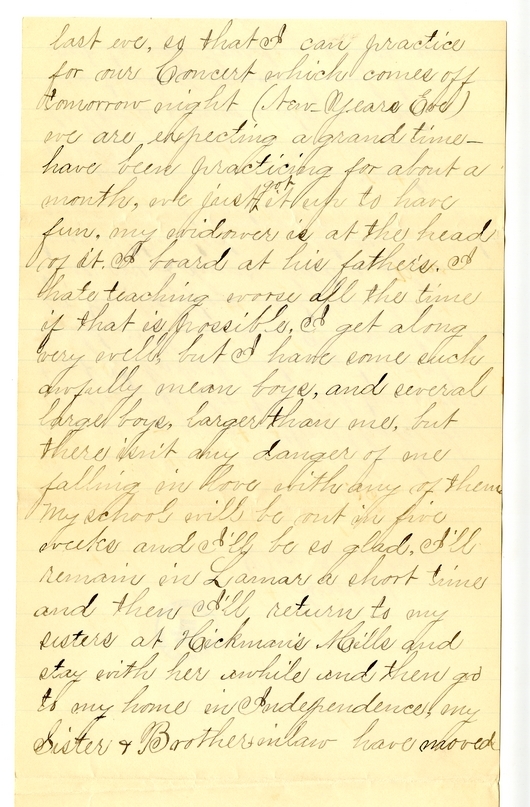 last eve, so that I can practice
for our Concert which comes off
tomorrow night (New-Years Eve)
we are expecting a grand time-
have been practicing for about a
month, we just got it up to have
fun. my widower is at the head
of it. I board at his fathers. I
hate teaching worse all the time
if that is possible. I get along
very well, but I have some such
awfully mean boys, and several
large boys, larger than me, but
there isn't any danger of me
falling in love with any of them
My school will be out in five
weeks and I'll be so glad, I'll
remain in Lamar a short time
and then I'll return to my
sisters at Hickman's Mills and
stay with her awhile and then go
to my home in Independence, my
Sister & Brother inlaw have moved